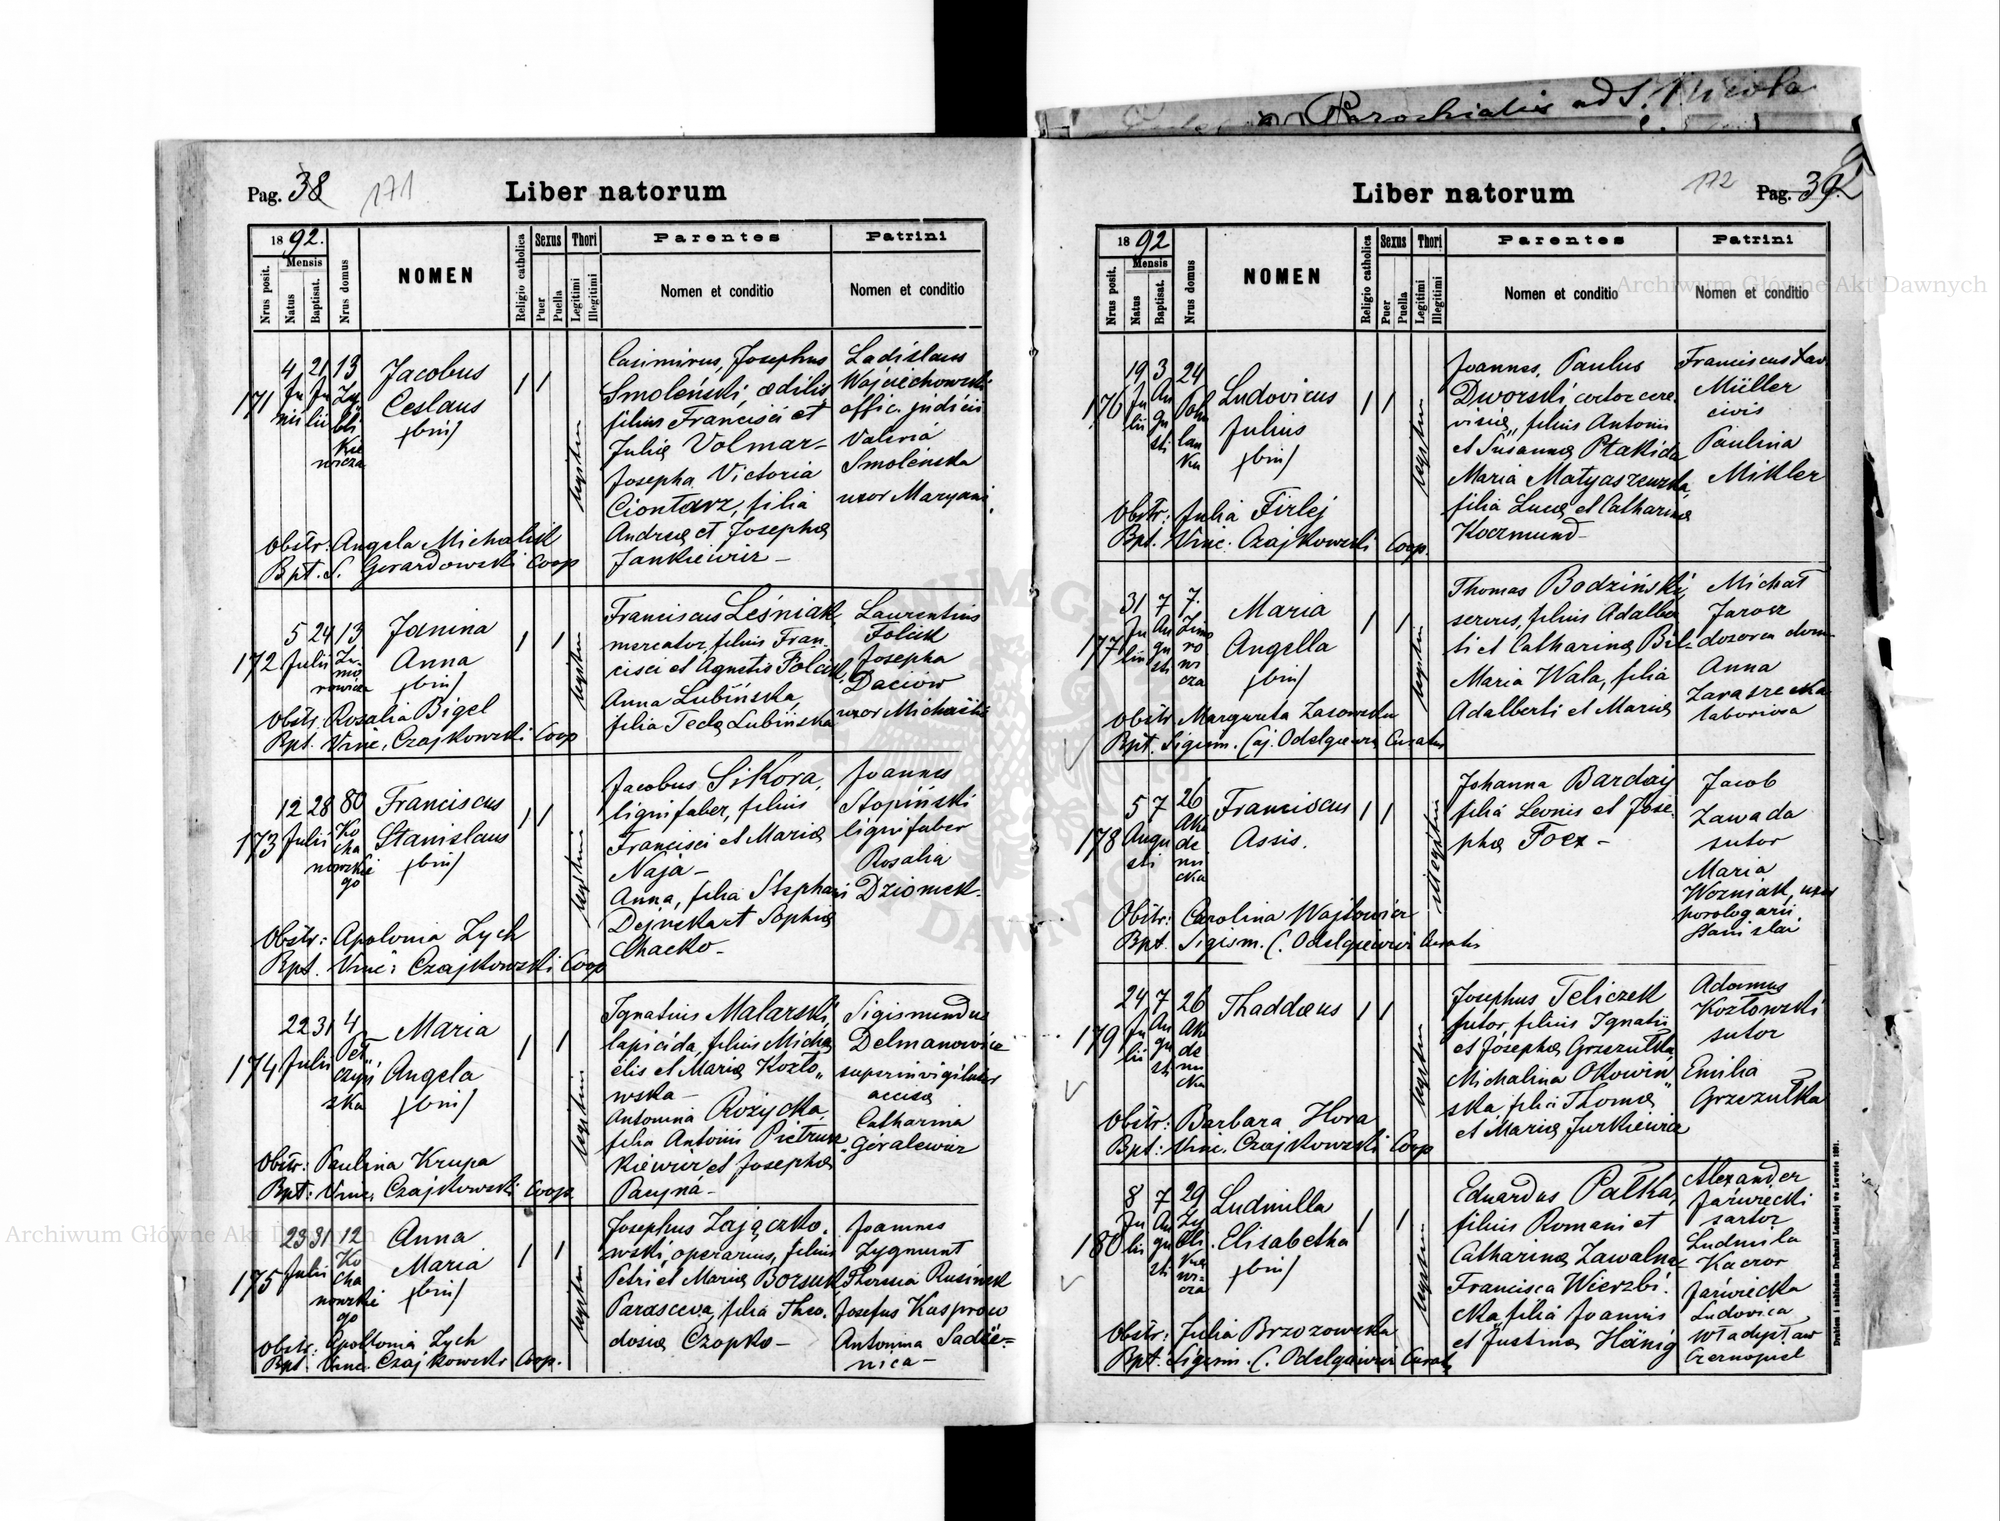 Parochialis ad S. Nicola
Pag. 38
171
Liber natorum
1892.
Nrus posit.
Mensis
Natus
Baptisat.
Nrus domus
NOMEN
Religio catholica
Sexus
Puer
Puella
Thori
Legitimi
Illegitimi
Parentes
Nomen et conditio
Patrini
Nomen et conditio
171
4 Junii
21 Julii
13 Zyblikiewicza
Jacobus
Ceslaus
(bin)
1 1
legitim
Casimirus, Josephus
Smoleński, aedilis,
filius Francisci et
Juliæ Volmar-
Josepha Victoria
Ciontarz, filia
Andreæ et Josephæ
Jankiewicz -
Ladislaus
Wojciechowski
offic. judicii
Valeria
Smoleńska
uxor Maryani
Obstr: Angela Michalik
Bpt. S. Gerardowski Coop
172
5 24 Julii
13 Zimorowicza
Janina
Anna
(bin)
1 1
legitim
Franciscus Leśniak,
mercator, filius Fran-
cisci et Agnetis Folcik,
Anna Lubińska,
filia Teclæ Lubińska
Laurentius
Folcik
Josepha
Daciów
uxor Michaëlis
Obstr. Rosalia Bigel
Bpt. Vinc. Czajkowski Coop
173
12 28 Julii
80 Kochanowskiego
Franciscus
Stanislaus
(bin)
1 1
legitim
Jacobus Sikora,
lignifaber, filius
Francisci et Mariæ
Naja-
Anna, filia Stephani
Dejnekart Sophiæ
Chacko-
Joannes
Stopiński
lignifaber
Rosalia
Dziomek-
Obstr: Apolonia Zych
Bpt. Vinc: Czajkowski Coop
174
22 31 Julii
4
Maria
Angela
(bin)
1 1
legitim
Ignatius Malarski,
lapicida, filius Micha
ëlis et Mariæ Kozło„
wska-
Antonina Rożycka,
filia Antonii Pietrusz
kiewicz et Josephæ
Paujna-
Sigismundus
Delmanowicz
superinvigilator
accisæ
Catharina
Goralewicz
Obstr: Paulina Krupa
Bpt: Vinc. Czajkowski Coop.
175
23 31 Julii
12 Kochanowskiego
Anna
Maria
(bin)
1 1
legitim
Josephus Zajączko-
wski, operarius, filius
Petri et Mariæ Borsuk
Parasceva, filia Theo.
dosia Czopko-
Joannes
Zygmunt
Theresia Rusinek
Josefus Kasprow
Antonina Sadie=
nica-
Obstr: Apollonia Zych
Bpt. Vinc. Czajkowski Coop.
172
Pag. 39.
Liber natorum
1892
Nrus posit.
Mensis
Natus
Baptisat.
Nrus domus
NOMEN
Religio catholica
Sexus
Puer
Puella
Thori
Legitimi
Illegitimi
Parentes
Nomen et conditio
Patrini
Nomen et conditio
176
19 Julii
3 Augusti
24 Pohulanka
Ludovicus
Julius
(bin)
1 1
legitim
Joannes, Paulus
Dworski coctor cere
visiæ, filius Antonii
et Susannæ Ptakida
Maria Matyaszewska,
filia Lucæ et Catharinæ
Koczmund-
Franciscus Xav
Müller
civis
Paulina
Mikler
Obstr: Julia Firlej
Bpt. Vinc: Czajkowski Coop.
177
31 Julii
7 Augusti
7. Zimorowicza
Maria
Angella
(bin)
1 1
legitim
Thomas Bodziński,
servus, filius Adalber
ti et Catharina Bil-
Maria Wala, filia
Adalberti et Mariæ
Michał
Jarosz
dozorca dom.
Anna
Zaraszecka
laboriosa
Obstr Margareta Lasowska
Bpt. Sigism. Caj. Odelgiewicz Curatus
178
5 7 Augusti
26 Akademicka
Franciscus
Assis.
1 1
illegitim
Johanna Barday
filia Leonis et Jose-
phæ Foex-
Jacob
Zawada
sutor
Maria
Wozniak, uxor
horologarii,
Stanislai
Obstr: Carolina Wojtowicz
Bpt Sigism. C. Odelgiewicz Curatus
179
24 Julii
7 Augusti
26 Akademicka
Thaddæus
1 1
legitim
Josephus Teliczek
sutor, filius Ignatii
et Josephæ Grzezułka,
Michalina Okowin„
ska, filia Thomæ
et Mariæ Jurkiewicz
Adamus
Kozłowski
sutor
Emilia
Grzezułka
Obstr: Barbara Hora
Bpt: Vinc. Czajkowski Coop
180
8 Julii
7 Augusti
29 Zyblikiewicza
Ludmilla
Elisabetha
(bin)
1 1
legitim
Eduardus Pałka,
filius Romani et
Catharinæ Zawalna
Francisca Wierzbi.
cka filia Joannis
et Justinæ Hänig
Alexander
Jaźwiecki
sartor
Ludmila
Kaczor
Jaźwiecka
Ludovica
Władysław
Czernopiel
Obstr: Julia Brzozowska
Bpt: Sigism. C. Odelgiewicz Curatus
Drukiem i nakładem Drukarni Ludowej we Lwowie 1891.
Archiwum Główne Akt Dawnych
Archiwum Główne Akt Dawnych
ARCHIWUM GŁÓWNE AKT DAWNYCH